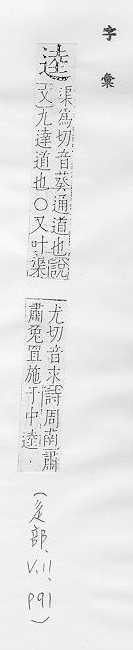 字彙
逵
渠為切音葵通道也說
文九達道也○又叶渠
尤切音求詩周南肅
肅兔罝施于中逵.
(辵部, V.11, P91)